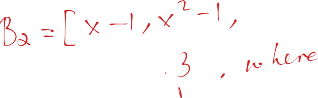 B₂ = [x-1, x²-1,
3, where